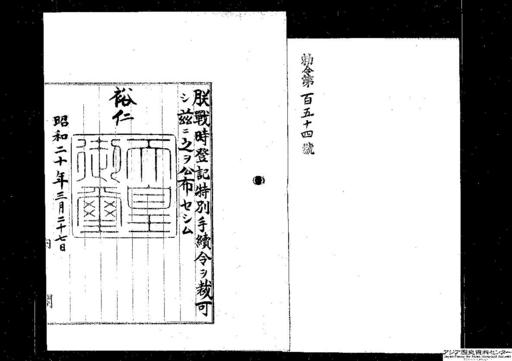 勅令第百五十四號
朕戰時登記特別手續令ヲ裁可
シ茲ニ之ヲ公布セシム
裕仁
天皇御璽
昭和二十年三月二十七日
内閣
アジア歴史資料センター